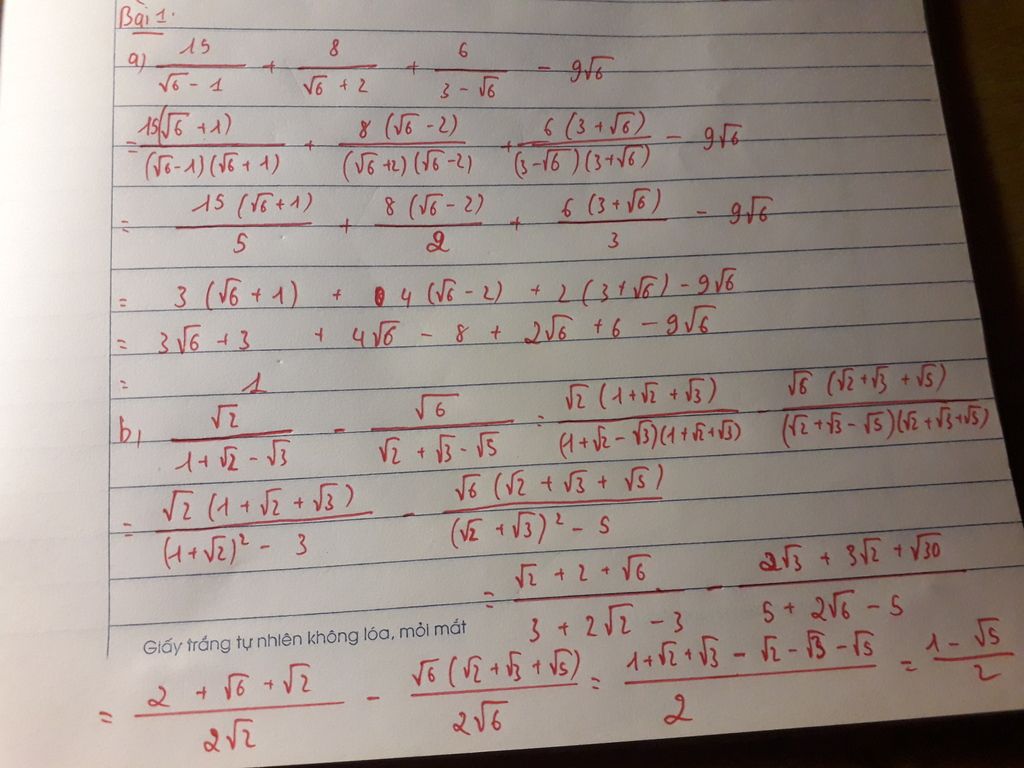 Bài 1.
a) 15/(√6 - 1) + 8/(√6 + 2) + 6/(3 - √6) - 9√6
= 15(√6 + 1)/((√6 - 1)(√6 + 1)) + 8(√6 - 2)/((√6 + 2)(√6 - 2)) + 6(3 + √6)/((3 - √6)(3 + √6)) - 9√6
= 15(√6 + 1)/5 + 8(√6 - 2)/2 + 6(3 + √6)/3 - 9√6
= 3(√6 + 1) + 4(√6 - 2) + 2(3 + √6) - 9√6
= 3√6 + 3 + 4√6 - 8 + 2√6 + 6 - 9√6
= 1
b, √2/(1 + √2 - √3) - √6/(√2 + √3 - √5) = √2(1 + √2 + √3)/((1 + √2 - √3)(1 + √2 + √3)) - √6(√2 + √3 + √5)/((√2 + √3 - √5)(√2 + √3 + √5))
= √2(1 + √2 + √3)/((1 + √2)² - 3) - √6(√2 + √3 + √5)/((√2 + √3)² - 5)
= (√2 + 2 + √6)/(3 + 2√2 - 3) - (2√3 + 3√2 + √30)/(5 + 2√6 - 5)
Giấy trắng tự nhiên không lóa, mỏi mắt
= (2 + √6 + √2)/(2√2) - √6(√2 + √3 + √5)/(2√6) = (1 + √2 + √3 - √2 - √3 - √5)/2 = (1 - √5)/2